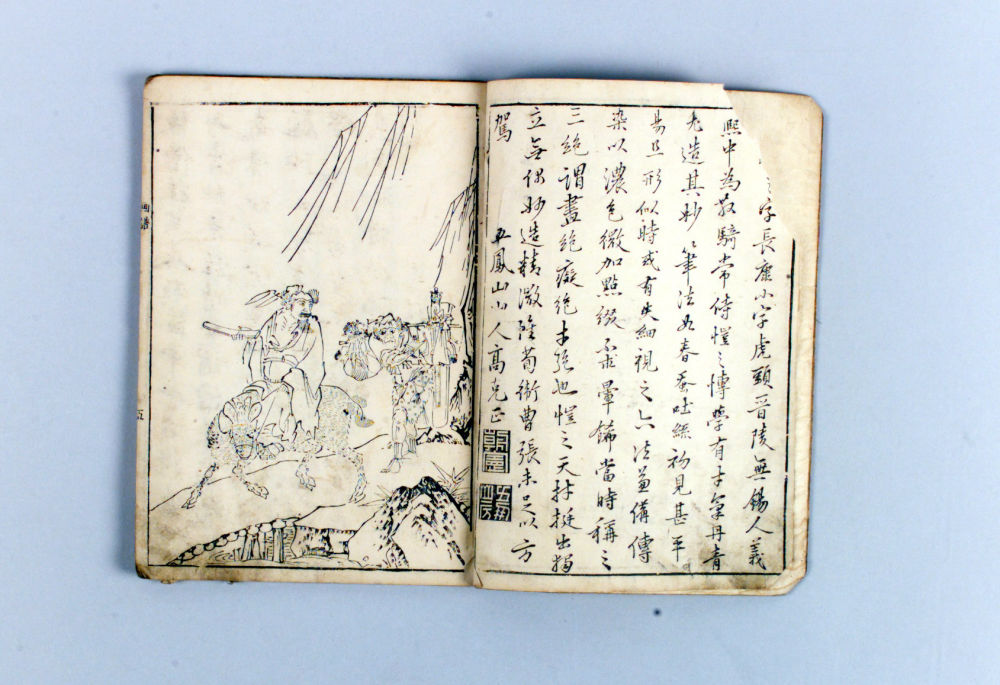 之字長康小字虎頭晉陵無錫人義
熙中為散騎常侍愷之博學有才氣丹青
尤造其妙筆法如春蚕吐絲初見甚平
易且形似時或有失細視之六法兼備傳
染以濃色微加點綴不求暈飾當時稱之
三絕謂畫絕癡絕才絕也愷之天材挺出獨
立無偶妙造精微雖荀衛曹張未足以方
駕
五鳳山人高克正
画譜
五